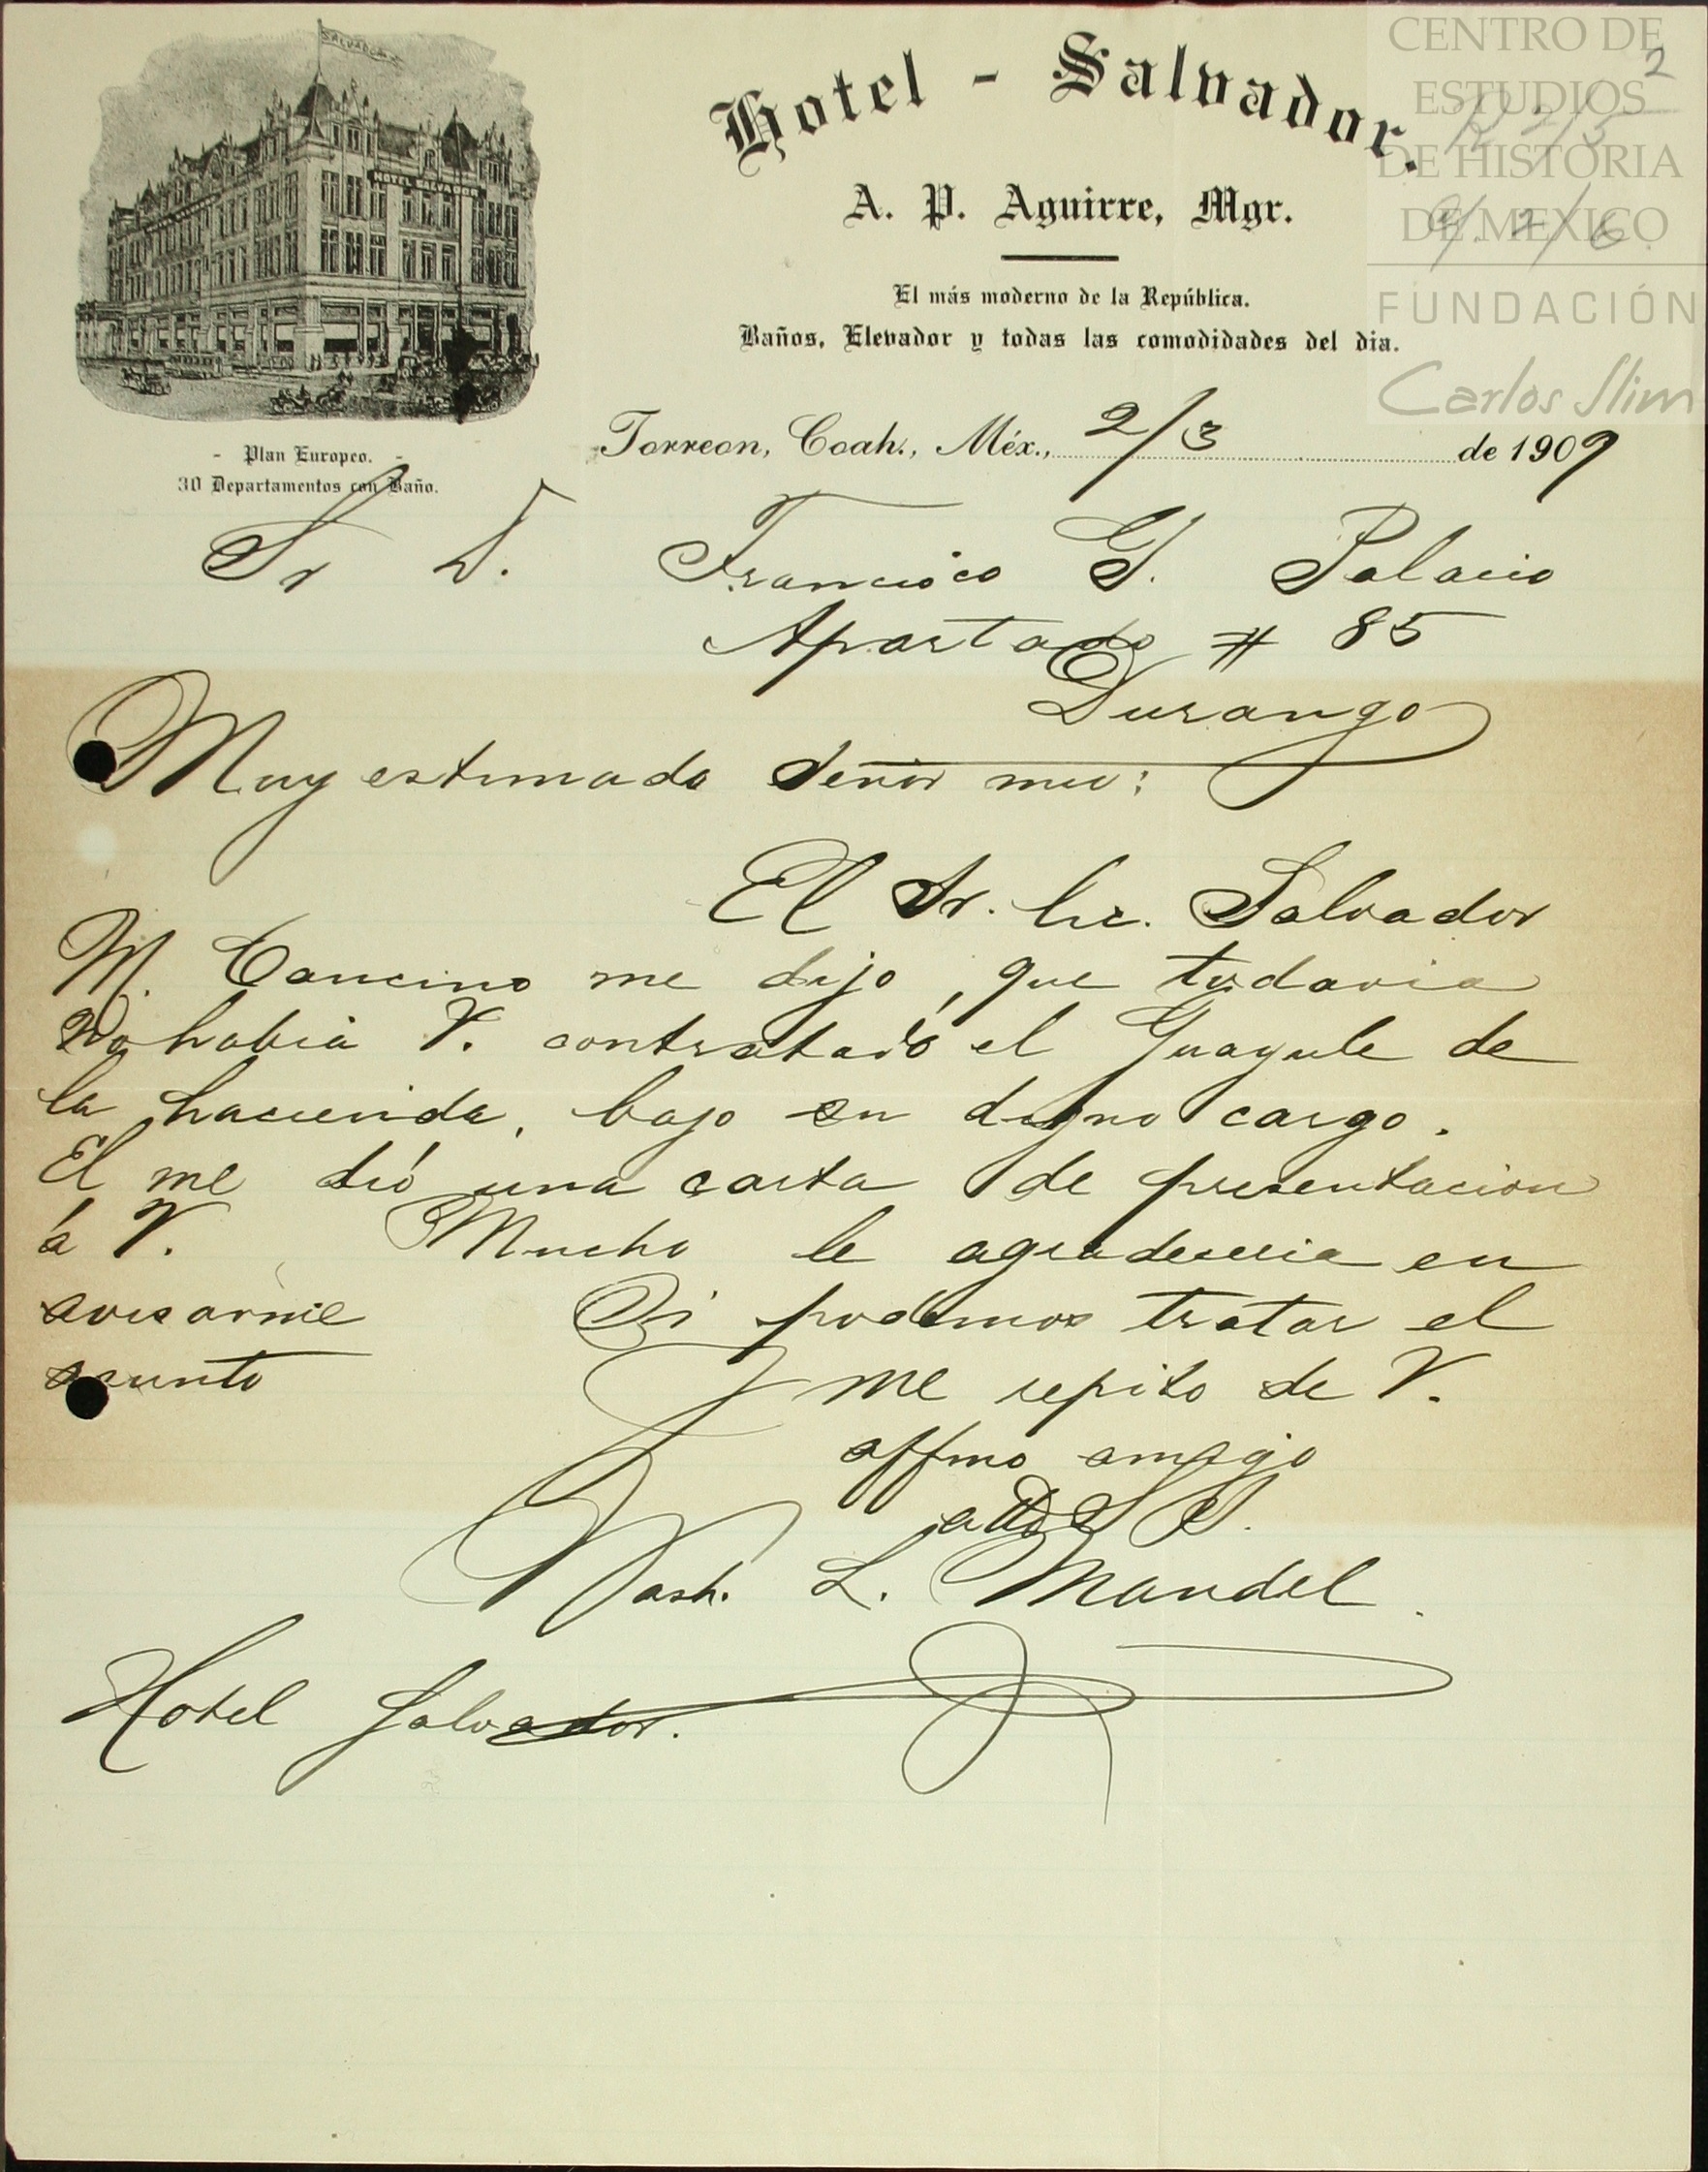 SALVADOR
HOTEL SALVADOR
Hotel - Salvador.
A. P. Aguirre, Mgr.
El más moderno de la República.
Baños, Elevador y todas las comodidades del dia.
- Plan Europeo. -
30 Departamentos con Baño.
CENTRO DE
ESTUDIOS
DE HISTORIA
DE MEXICO
FUNDACIÓN
Carlos Slim
2
R 2/5
C/. 2/6
Torreon, Coah., Méx., 2/3 de 1909
Sr D. Francisco G. Palacio
Apartado # 85
Durango
Muy estimado Señor mio:
El Sr. Lic. Salvador
M. Cancino me dijo, que todavia
No habia V. contratado el Guayule de
la hacienda, bajo su digno cargo.
El me dió una carta de presentacion
á V. Mucho le agradeceria en
avisarme Si podemos tratar el
asunto
Y me repito de V.
affmo amigo
atto S S.
Wash. L. Mandel.
Hotel Salvador.